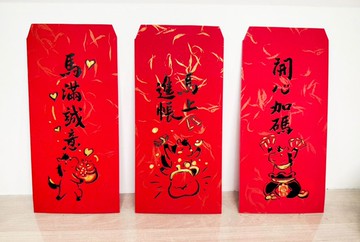 馬滿誠意
馬上
進帳
開心加碼